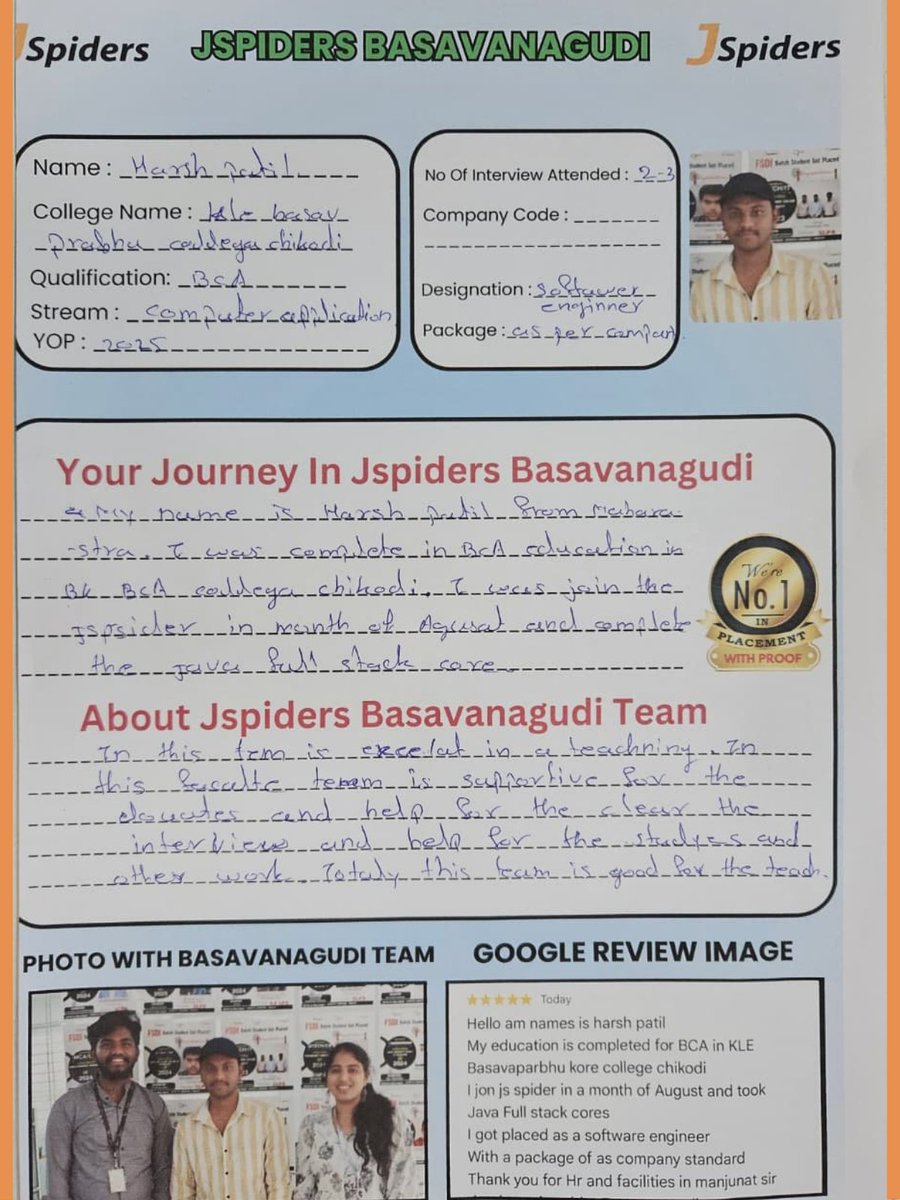 JSpiders
JSPIDERS BASAVANAGUDI
JSpiders
Name : Harsh patil
College Name : kle basav
prabhu colldega chikodi
Qualification: BCA
Stream : computer application
YOP : 2025
No Of Interview Attended : 2-3
Company Code :
Designation : Softawer
enginner
Package : as per compan
Your Journey In Jspiders Basavanagudi
My name is Harsh patil from Mahara
-stra. I was complete in BCA education in
BK BCA colldega chikodi. I was join the
jspsider in month of Agusat and complete
the java full stack core
We're
No.1
IN
PLACEMENT
WITH PROOF
About Jspiders Basavanagudi Team
In this frm is excelat in a teachning. In
this faculte teram is supportive for the
douutes and help for the clear the
interview and help for the studyes and
other work. Totaly this team is good for the teach.
PHOTO WITH BASAVANAGUDI TEAM
GOOGLE REVIEW IMAGE
★★★★★ Today
Hello am names is harsh patil
My education is completed for BCA in KLE
Basavaparbhu kore college chikodi
I jon js spider in a month of August and took
Java Full stack cores
I got placed as a software engineer
With a package of as company standard
Thank you for Hr and facilities in manjunat sir